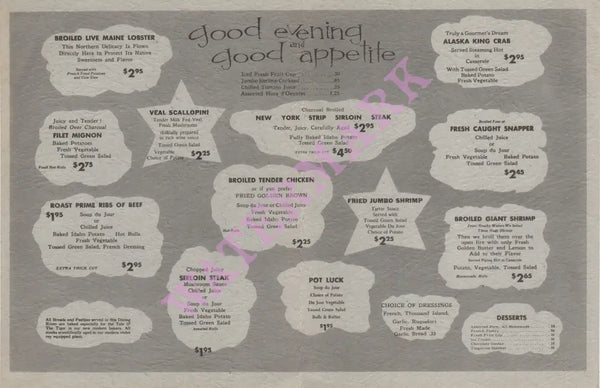 good evening
and
good appetite
Iced Fresh Fruit Cup
Jumbo Shrimp Cocktail
Chilled Tomato Juice
Assorted Hors d'Oeuvres 1.25
BROILED LIVE MAINE LOBSTER
This Northern Delicacy Is Flown
Directly Here to Protect Its Native
Sweetness and Flavor
Served with
French Fried Potatoes
and Cole Slaw
$2.95
Truly a Gourmet's Dream
ALASKA KING CRAB
Served Steaming Hot
in
Casserole $2.95
With Tossed Green Salad
Baked Potato
Fresh Vegetable
Juicy and Tender!
Broiled Over Charcoal
FILET MIGNON
Baked Potatoes
Fresh Vegetable
Tossed Green Salad
Fresh Hot Rolls $2.75
VEAL SCALLOPINI
Tender Milk Fed Veal
Fresh Mushrooms
skilfully prepared
in rich wine sauce
Tossed Green Salad
Vegetable
Choice of Potato $2.25
Charcoal Broiled
NEW YORK STRIP SIRLOIN STEAK
Tender, Juicy, Carefully Aged $2.95
Fully Baked Idaho Potato
Tossed Green Salad
EXTRA THICK CUT $4.50
FRESH CAUGHT SNAPPER
Chilled Juice
or
Soup du Jour
Fresh Vegetable Baked Potato
Tossed Green Salad
$2.65
ROAST PRIME RIBS OF BEEF
$1.95 Soup du Jour
or
Chilled Juice
Baked Idaho Potato Hot Rolls
Fresh Vegetable
Tossed Green Salad, French Dressing
EXTRA THICK CUT $2.95
BROILED TENDER CHICKEN
or if you prefer
FRIED GOLDEN BROWN
Soup du Jour or Chilled Juice
Fresh Vegetable
Baked Idaho Potato
Tossed Green Salad
Hot Rolls
$2.25
FRIED JUMBO SHRIMP
Tartar Sauce
Served with
Tossed Green Salad
Vegetable Du Jour
Choice of Potato
$2.25
BROILED GIANT SHRIMP
From Nearby Waters We Select
These Huge Shrimp
Then we broil them over the
open fire with only Fresh
Golden Butter and Lemon to
Add to their Flavor
Served Piping Hot in Casserole
Potato, Vegetable, Tossed Salad
Homemade Rolls $2.65
Chopped Juicy
SIRLOIN STEAK
Mushroom Sauce
Chilled Juice
or
Soup du Jour
Fresh Vegetable
Baked Idaho Potato
Tossed Green Salad
Assorted Rolls
$1.95
POT LUCK
Soup du Jour
Choice of Potato
Vegetable Du Jour
Tossed Green Salad
Rolls & Butter
$1.95
CHOICE OF DRESSINGS
French, Thousand Island,
Garlic, Roquefort
Fresh Made
Garlic, Bread .35
DESSERTS
Assorted Pies, All Homemade
French Pastry
Ice Cream
Chocolate Sundae
All Breads and Pastries served in this Dining
Room are baked especially for the Isle of
WATERMARK